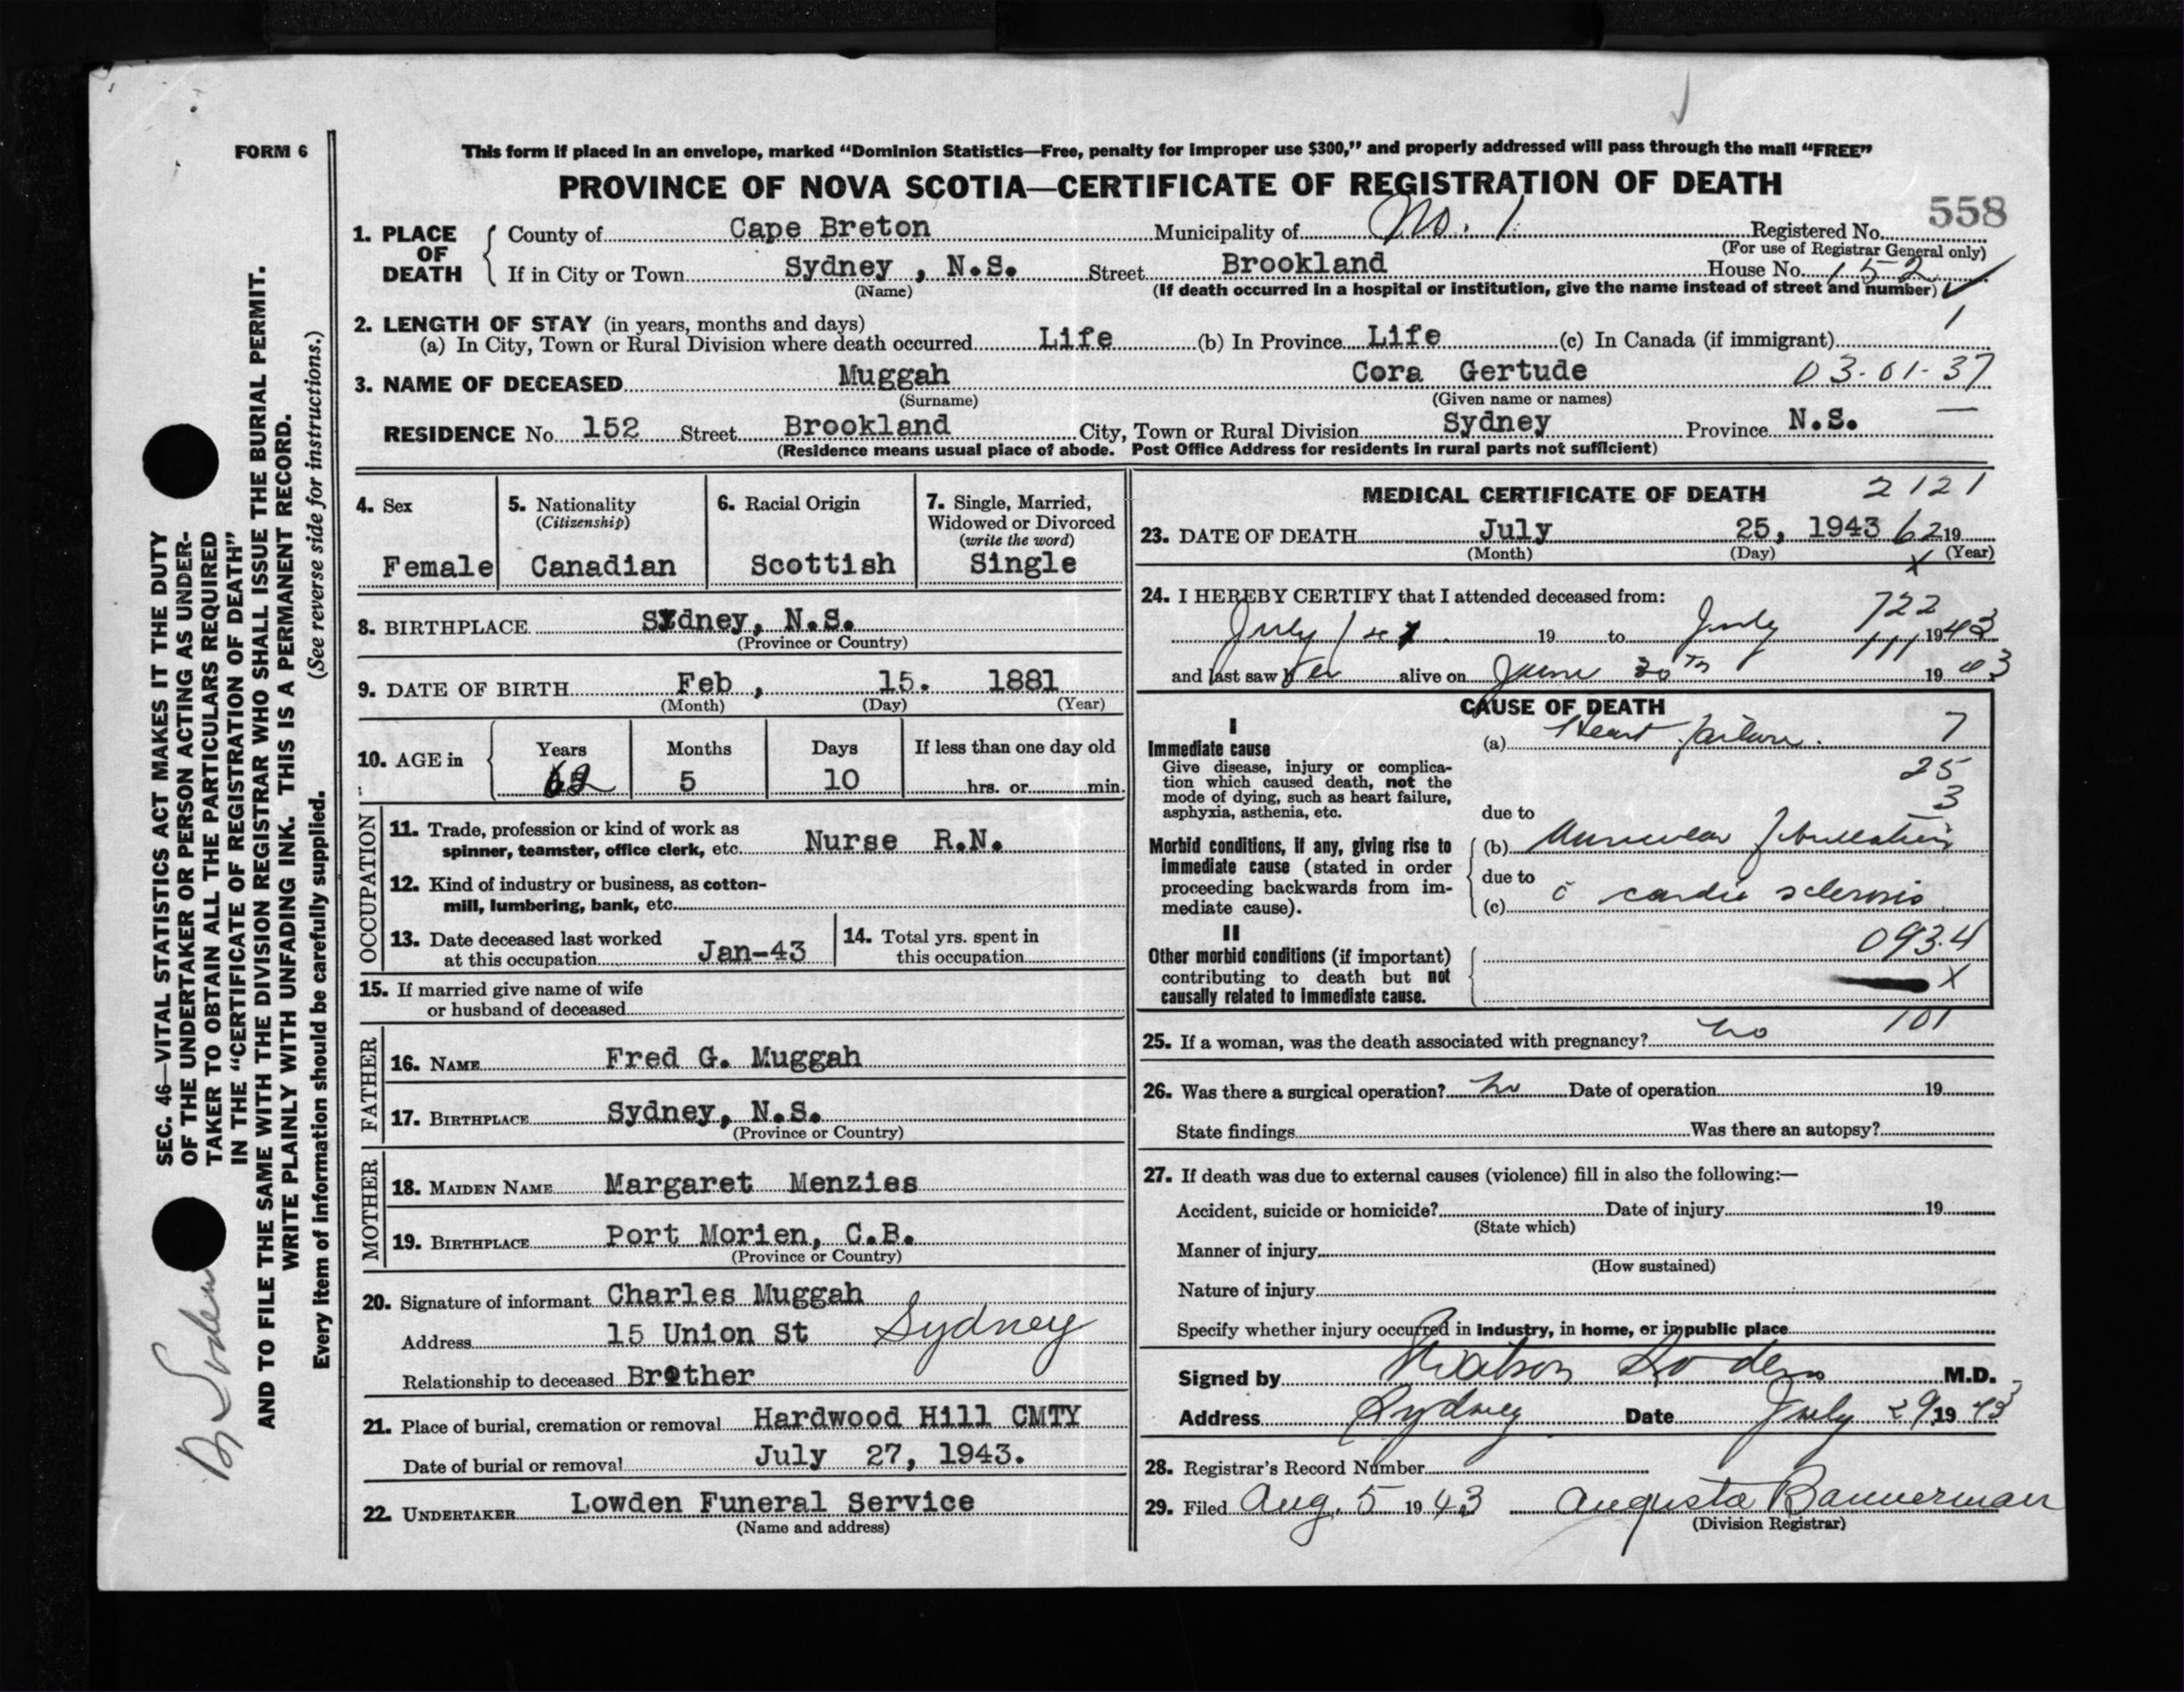 FORM 6
This form if placed in an envelope, marked “Dominion Statistics—Free, penalty for improper use $300,” and properly addressed will pass through the mail “FREE”
PROVINCE OF NOVA SCOTIA—CERTIFICATE OF REGISTRATION OF DEATH
558
1. PLACE OF DEATH
County of Cape Breton Municipality of No. 1 Registered No.
(For use of Registrar General only)
If in City or Town Sydney, N.S. Street Brookland House No. 152
(Name) (If death occurred in a hospital or institution, give the name instead of street and number)
2. LENGTH OF STAY (in years, months and days) 1
(a) In City, Town or Rural Division where death occurred Life (b) In Province Life (c) In Canada (if immigrant)
3. NAME OF DECEASED Muggah Cora Gertude 03-01-37
(Surname) (Given name or names)
RESIDENCE No. 152 Street Brookland City, Town or Rural Division Sydney Province N.S.
(Residence means usual place of abode. Post Office Address for residents in rural parts not sufficient)
4. Sex
Female
5. Nationality
(Citizenship)
Canadian
6. Racial Origin
Scottish
7. Single, Married,
Widowed or Divorced
(write the word)
Single
8. BIRTHPLACE Sydney, N.S.
(Province or Country)
9. DATE OF BIRTH Feb, 15. 1881
(Month) (Day) (Year)
10. AGE in
Years Months Days If less than one day old
62 5 10 hrs. or min.
OCCUPATION
11. Trade, profession or kind of work as
spinner, teamster, office clerk, etc. Nurse R.N.
12. Kind of industry or business, as cotton-
mill, lumbering, bank, etc.
13. Date deceased last worked
at this occupation Jan-43
14. Total yrs. spent in
this occupation
15. If married give name of wife
or husband of deceased
FATHER
16. NAME Fred G. Muggah
17. BIRTHPLACE Sydney, N.S.
(Province or Country)
MOTHER
18. MAIDEN NAME Margaret Menzies
19. BIRTHPLACE Port Morien, C.B.
(Province or Country)
20. Signature of informant Charles Muggah
Address 15 Union St Sydney
Relationship to deceased Brother
21. Place of burial, cremation or removal Hardwood Hill CMTY
Date of burial or removal July 27, 1943.
22. UNDERTAKER Lowden Funeral Service
(Name and address)
MEDICAL CERTIFICATE OF DEATH 2121
23. DATE OF DEATH July 25, 1943 62 19
(Month) (Day) (Year)
x
24. I HEREBY CERTIFY that I attended deceased from:
722
July 1st 19 to July 1943
111
and last saw her alive on June 30th 1943
CAUSE OF DEATH
I
Immediate cause
Give disease, injury or complica-
tion which caused death, not the
mode of dying, such as heart failure,
asphyxia, asthenia, etc.
(a) Heart failure. 7
25
3
due to
Morbid conditions, if any, giving rise to
immediate cause (stated in order
proceeding backwards from im-
mediate cause).
(b) Auricular fibrillation
due to
(c) c̄ cardio sclerosis
II
Other morbid conditions (if important)
contributing to death but not
causally related to immediate cause.
093.4
X
101
25. If a woman, was the death associated with pregnancy? no
26. Was there a surgical operation? no Date of operation 19
State findings Was there an autopsy?
27. If death was due to external causes (violence) fill in also the following:—
Accident, suicide or homicide? Date of injury 19
(State which)
Manner of injury
(How sustained)
Nature of injury
Specify whether injury occurred in industry, in home, or in public place
Signed by Watson Soden M.D.
Address Sydney Date July 29 1943
28. Registrar's Record Number
29. Filed Aug. 5 1943 Augusta Bannerman
(Division Registrar)
SEC. 46—VITAL STATISTICS ACT MAKES IT THE DUTY
OF THE UNDERTAKER OR PERSON ACTING AS UNDER-
TAKER TO OBTAIN ALL THE PARTICULARS REQUIRED
IN THE “CERTIFICATE OF REGISTRATION OF DEATH”
AND TO FILE THE SAME WITH THE DIVISION REGISTRAR WHO SHALL ISSUE THE BURIAL PERMIT.
WRITE PLAINLY WITH UNFADING INK. THIS IS A PERMANENT RECORD.
Every item of information should be carefully supplied. (See reverse side for instructions.)
Soden